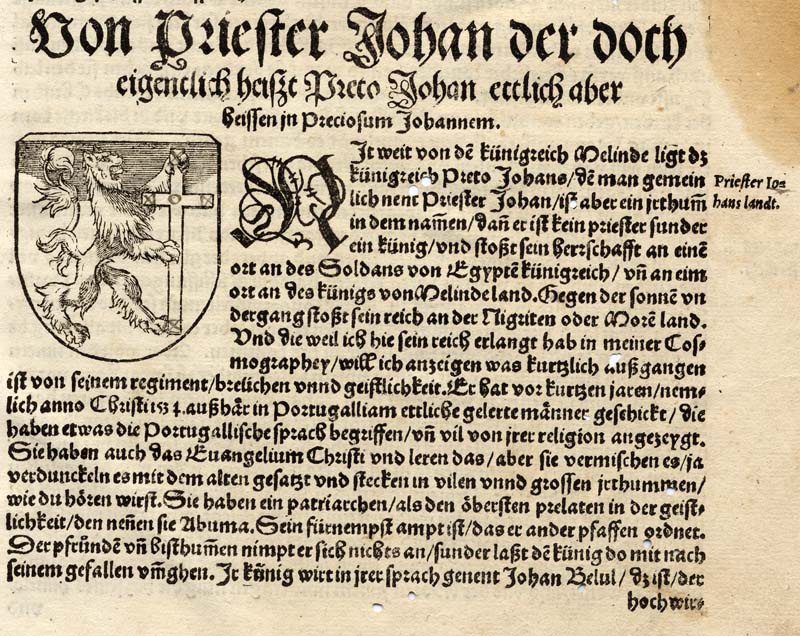 Von Priester Johan der doch
eigentlich heißt Preto Johan ettlich aber
heissen jn Preciosum Johannem.
NJt weit von dē künigreich Melinde ligt dz
künigreich Preto Johans/dē man gemein
lich nent Priester Johan/ist aber ein jrthum̄
in dem nam̄en/dañ er ist kein priester sunder
ein künig/vnd stoßt sein herrschafft an einē
ort an des Soldans von Egyptē künigreich/vñ an eim
ort an des künigs von Melinde land. Gegen der sonnē vn
dergang stoßt sein reich an der Nigriten oder Morē land.
Vnd die weil ich hie sein reich erlangt hab in meiner Cos-
mographey/will ich anzeigen was kurtzlich außgangen
ist von seinem regiment/brelichen vnnd geistlichkeit. Er hat vor kurtzen jaren/nem-
lich anno Christi 1534. außhär in Portugalliam ettliche gelerte männer geschickt/die
haben etwas die Portugallische sprach begriffen/vñ vil von jrer religion angezeygt.
Sie haben auch das Euangelium Christi vnd leren das/aber sie vermischen es/ja
verdunckeln es mit dem alten gesatzt vnd stecken in vilen vnnd grossen jrthummen/
wie du hören wirst. Sie haben ein patriarchen/als den öbersten prelaten in der geist-
lichkeit/den neñen sie Abuma. Sein fürnempst ampt ist/das er ander pfaffen ordnet.
Der pfründē vñ bisthum̄en nimpt er sich nichts an/sunder laßt dē künig do mit nach
seinem gefallen vm̄ghen. Jr künig wirt in jrer sprach genent Johan Belul/dz ist/der
hochwir-
Priester Jo-
hans landt.